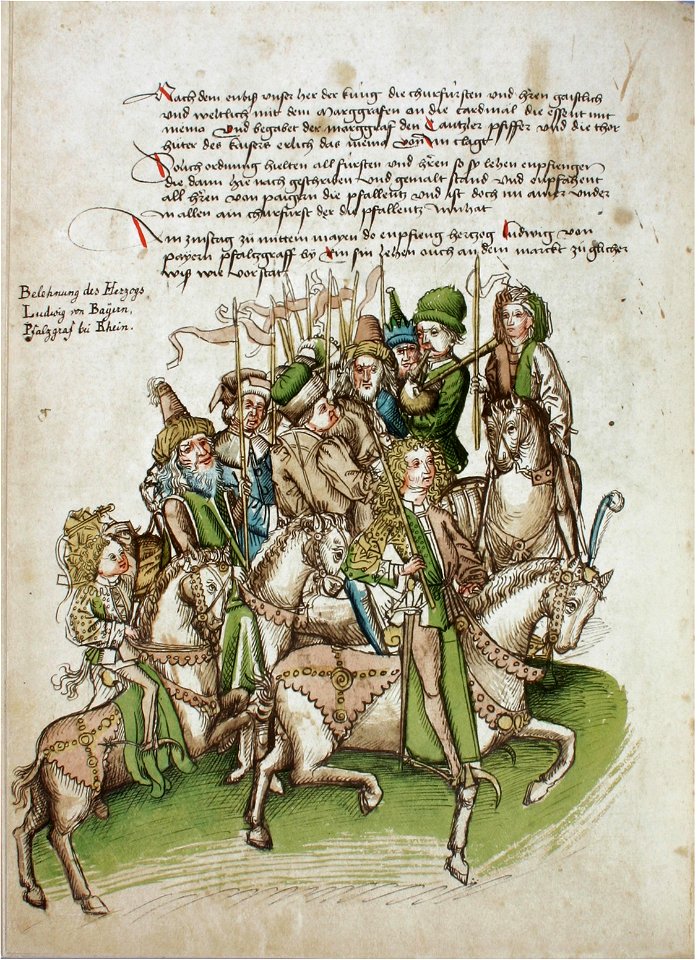 Nach dem enbiß unser her der kúng die churfúrsten und hren gaistlich
und weltlich mit dem Marggrafen on die cardinal die essent mit
nemo Und begabet der marggraf den Cantzler pfiffer und die thor
húter des kaisers erlich das nemo von im clagt
Solich ordnung hielten all fúrsten und hren so sy lehen enpfiengen
die dann hie nach geschriben und gemalt stand und enpfahent
all hren von paigern die pfallentz und ist doch nu ainer under
in allen ain churfúrst der die pfallentz Innhat
Am zinstag zú mittem mayen do enpfieng hertzog Ludwig von
payern pfaltzgraff by Rin sin lehen ouch an dem marckt zú glicher
wiß wie vor stat
Belehnung des Herzogs
Ludwig von Bayern,
Pfalzgraf bei Rhein.